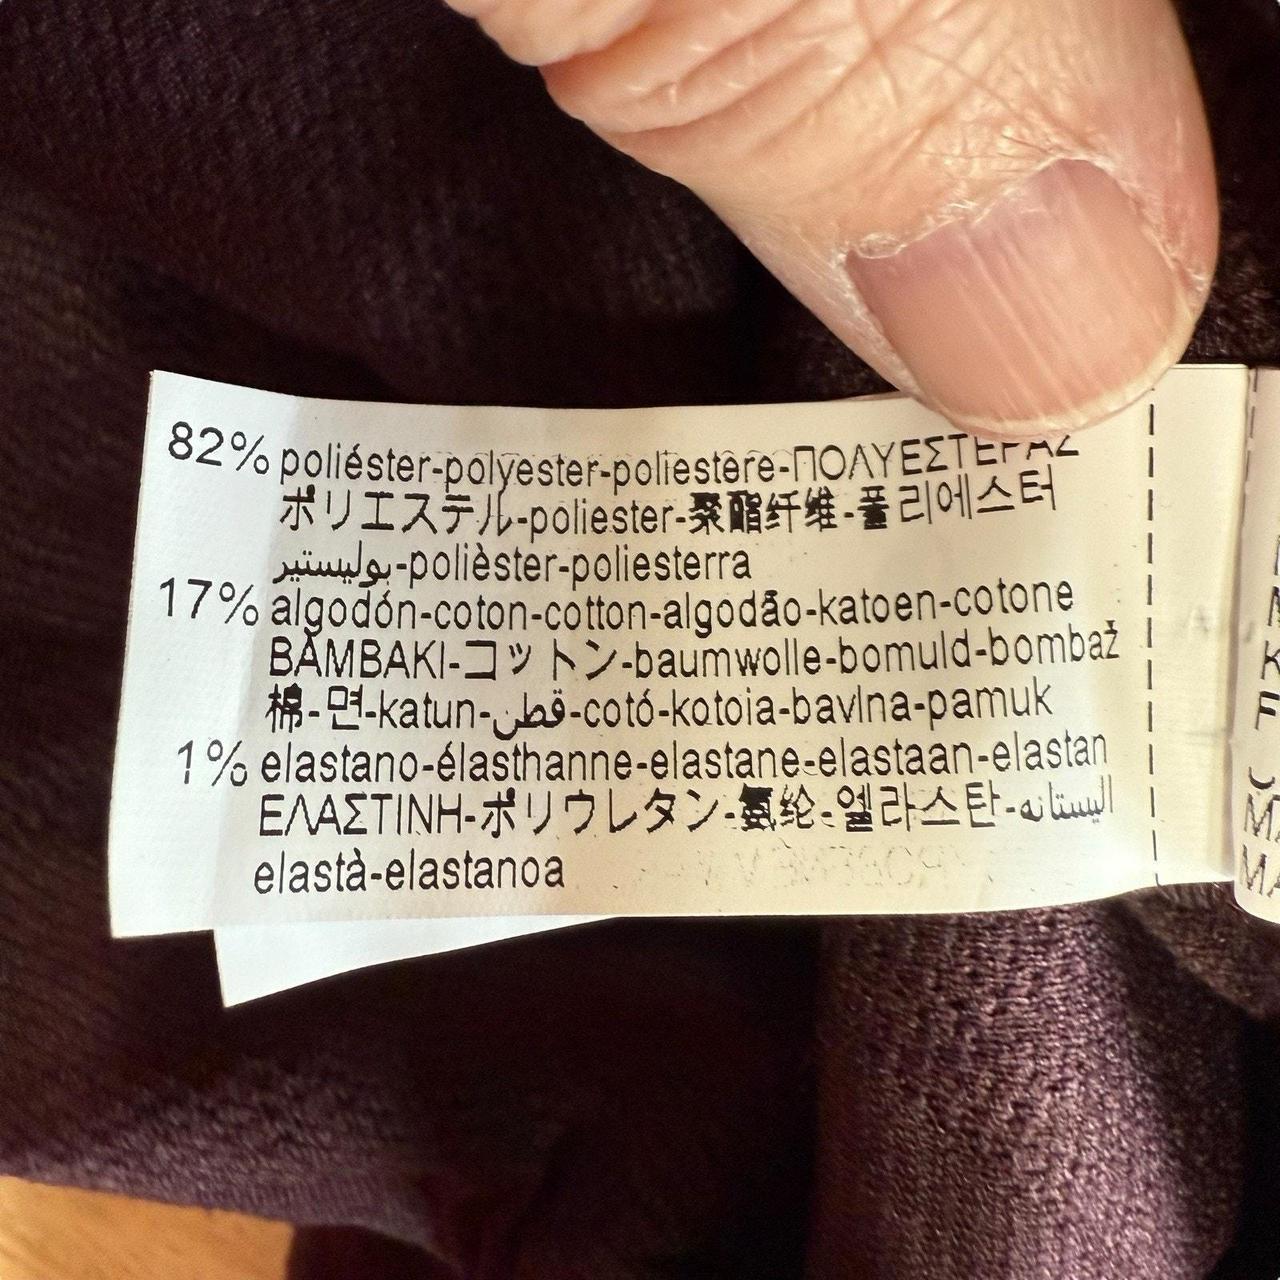 82% poliéster-polyester-poliestere-ΠΟΛΥΕΣΤΕΡΑΣ
ポリエステル-poliester-聚酯纤维-폴리에스터
بوليستير-polièster-poliesterra
17% algodón-coton-cotton-algodão-katoen-cotone
BAMBAKI-コットン-baumwolle-bomuld-bombaž
棉-면-katun-قطن-cotó-kotoia-bavlna-pamuk
1% elastano-élasthanne-elastane-elastaan-elastan
ΕΛΑΣΤΙΝΗ-ポリウレタン-氨纶-엘라스탄-اليستانه
elastà-elastanoa